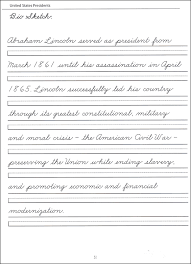 United States Presidents
Bio Sketch:
Abraham Lincoln served as president from
March 1861 until his assassination in April
1865. Lincoln successfully led his country
through its greatest constitutional, military
and moral crisis - the American Civil War -
preserving the Union while ending slavery,
and promoting economic and financial
modernization.